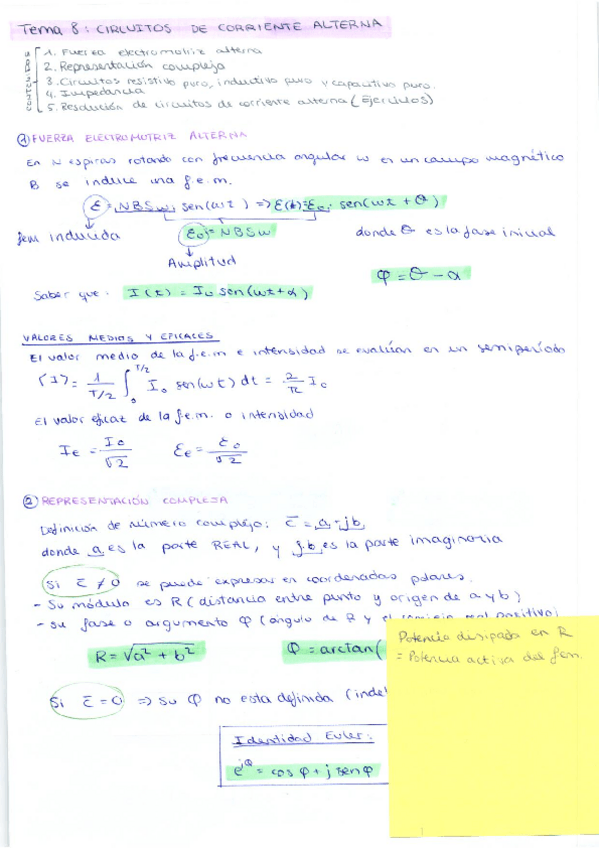 Tema 8: CIRCUITOS DE CORRIENTE ALTERNA
1. Fuerza electromotriz alterna
2. Representación compleja
3. Circuitos resistivo puro, inductivo puro y capacitivo puro.
4. Impedancia
5. Resolución de circuitos de corriente alterna (Ejercicios)
① FUERZA ELECTROMOTRIZ ALTERNA
En N espiras rotando con frecuencia angular w en un campo magnético
B se induce una f.e.m.
ε = NBSw · sen(wt) => ε(t) = ε₀ · sen(wt + θ)
fem inducida ε₀ = NBSw donde θ es la fase inicial
Amplitud
φ = θ - α
Saber que: I(t) = I₀ sen(wt + α)
VALORES MEDIOS Y EFICACES
El valor medio de la f.e.m e intensidad se evalúan en un semiperíodo
⟨I⟩ = 1/(T/2) ∫₀^(T/2) I₀ sen(wt) dt = 2/π I₀
El valor eficaz de la f.e.m. o intensidad
Ie = I₀/√2 εe = ε₀/√2
② REPRESENTACIÓN COMPLEJA
Definición de número complejo: c̄ = a + jb,
donde a es la parte REAL, y j·b, es la parte imaginaria
Si c̄ ≠ 0 se puede expresar en coordenadas polares.
- Su módulo es R (distancia entre punto y origen de a y b)
- Su fase o argumento φ (ángulo de R y el semieje real positivo)
R = √a² + b² φ = arctan(
Potencia disipada en R
= Potencia activa del fem.
Si c̄ = 0 => Su φ no esta definida (inde
Identidad Euler:
e^jφ = cos φ + j sen φ